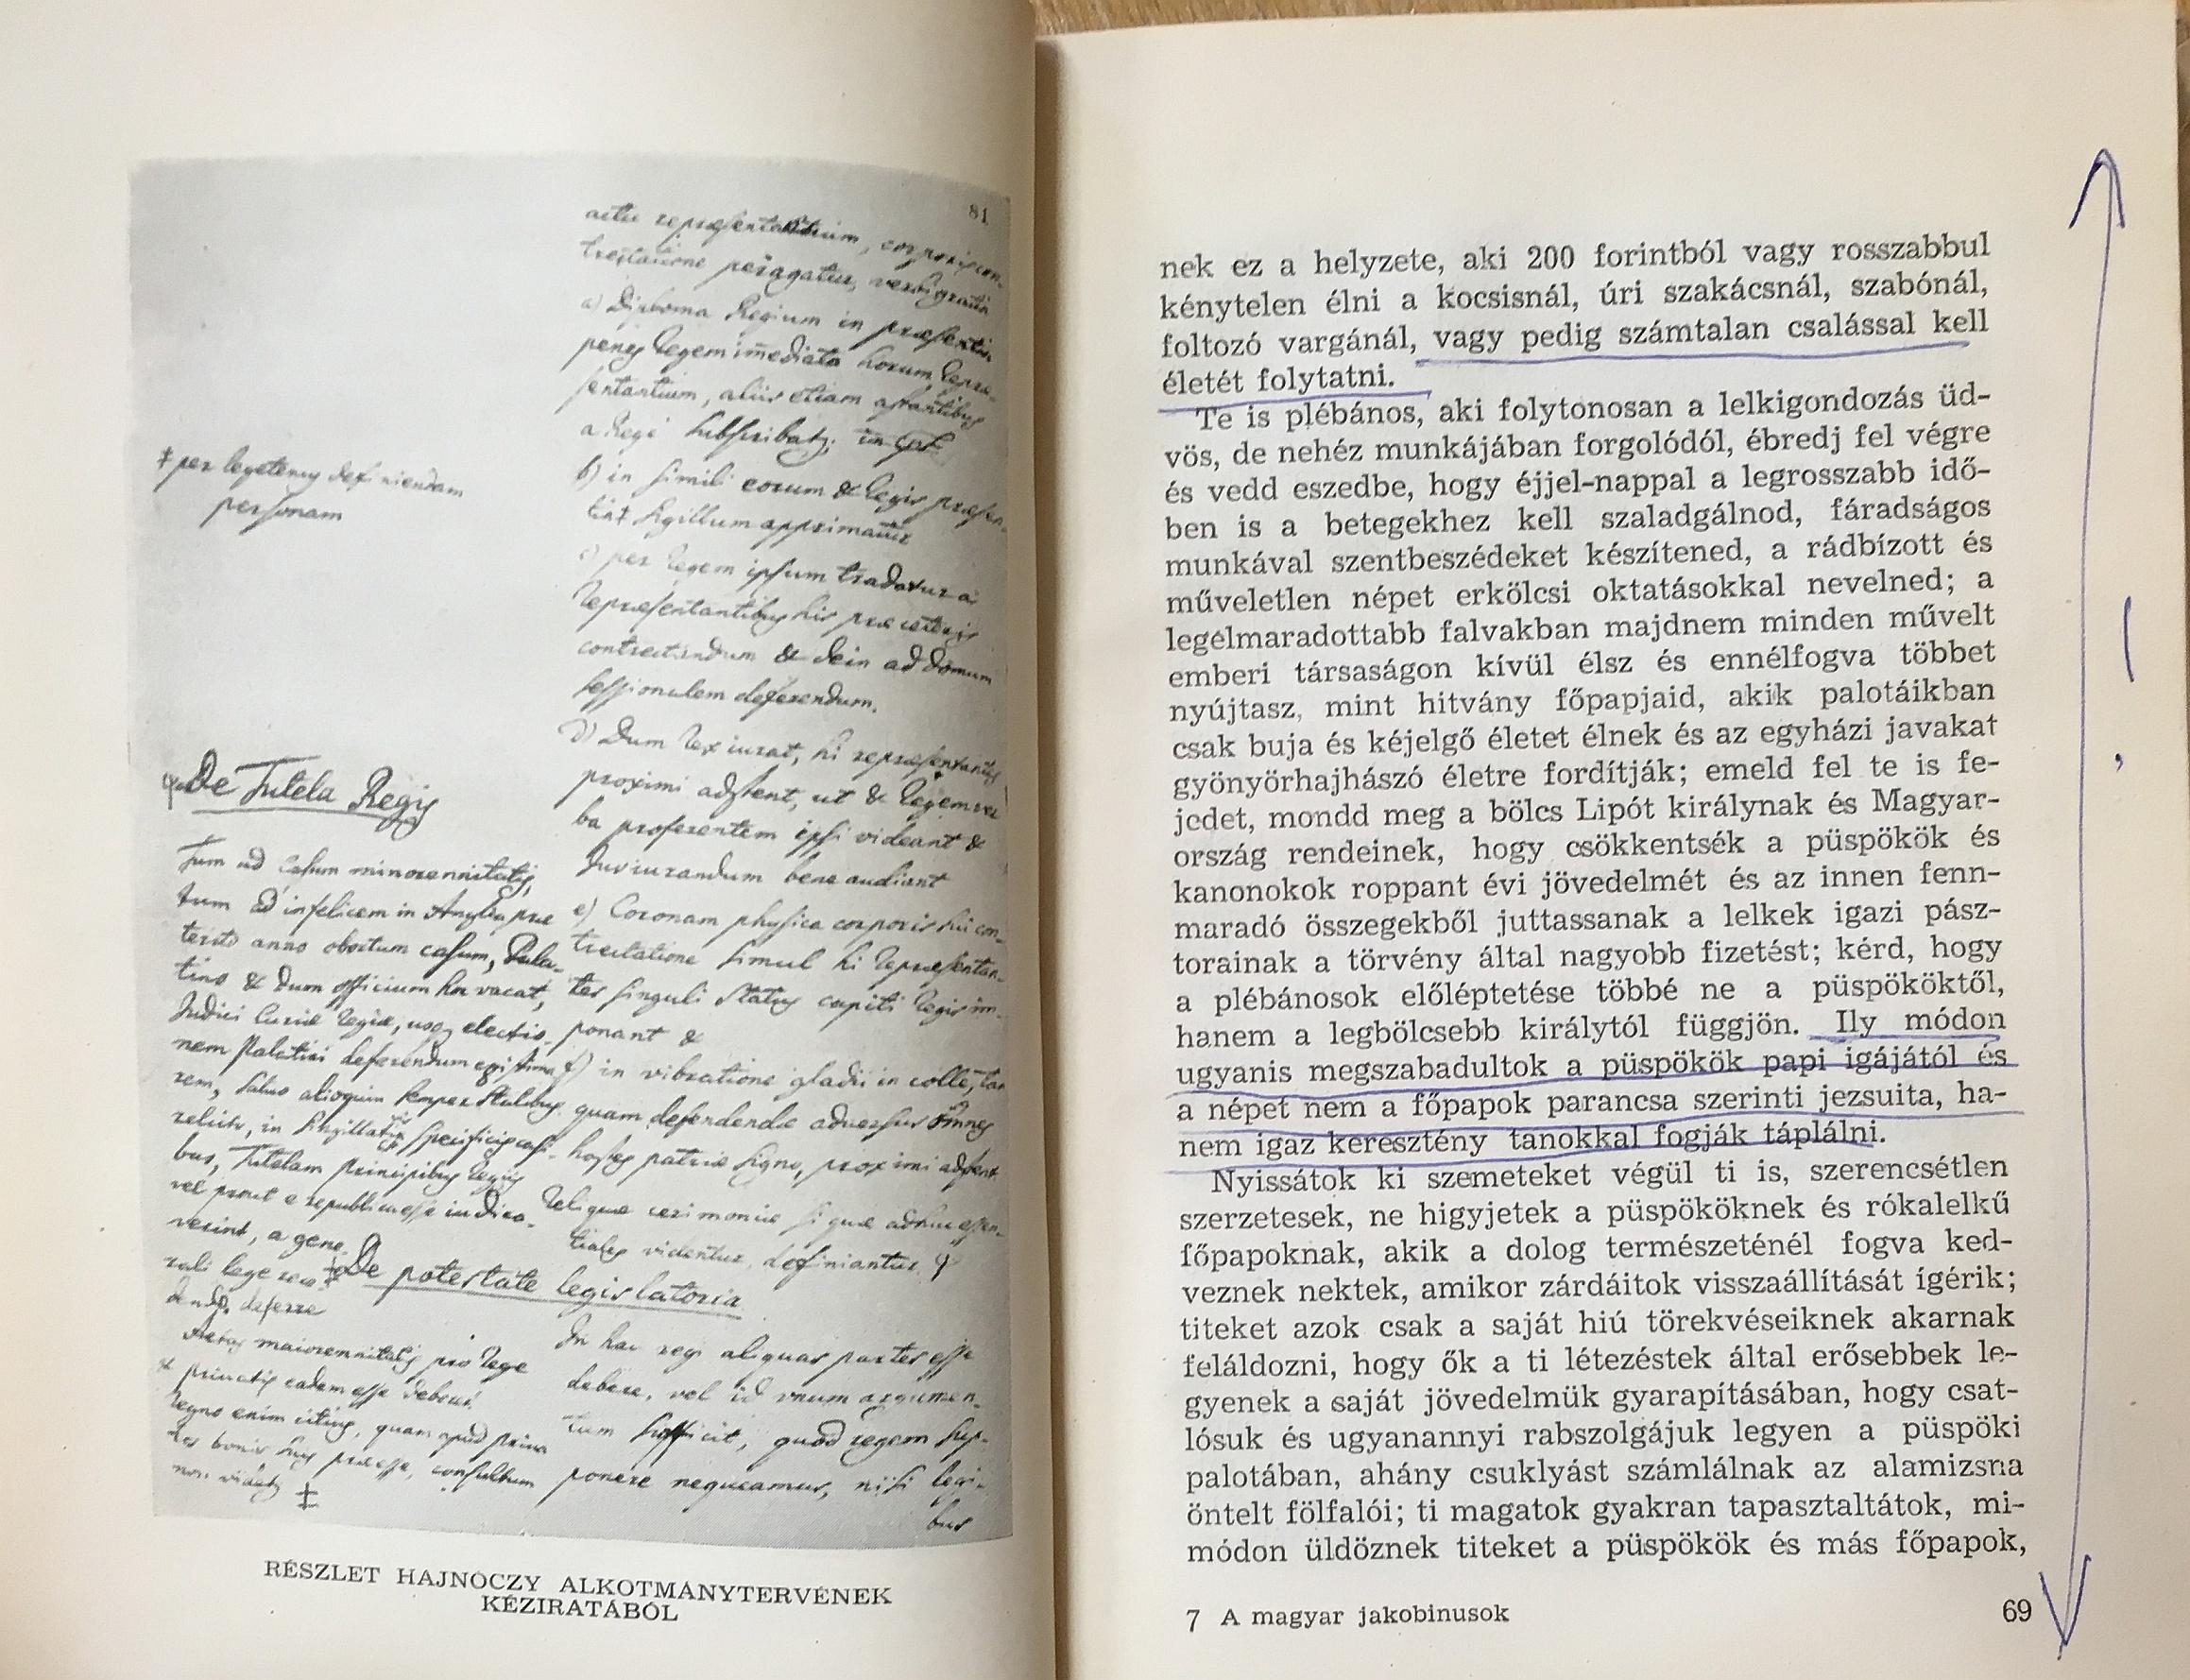 81
actu repraesentantium, corporis con-
trectatione peragatur, verbi gratia
a) Diploma Regium in praesentia
penes Regem immediata horum Reprae-
sentantium, aliis etiam astantibus
a Rege subscribatur,
b) in simili eorum & Regis praesen-
tia ‡ sigillum apprimatur
‡ per legem definiendam
personam
c) per Regem ipsum tradatur
Repraesentantibus his prae ceteris
contrectandum & dein ad domum
sessionalem deferendum.
d) Dum Rex iurat, hi repraesentantes
proximi adstent, ut & Regem ver-
ba proferentem ipsi videant &
Iusiurandum bene audiant
e) Coronam physica corporis sui con-
trectatione simul hi Repraesentan-
tes singuli Status capiti Regis im-
ponant &
f) in vibratione gladii in colle, tan
quam defendendae adversus omnes
hostes patriae signo, proximi adstent
Reliquae cerimoniae si quae adhuc essen-
tiales videntur, definiantur
De Tutela Regis
Tum ad casum minorennitatis,
tum ad infelicem in Anglia prae
terito anno obortum casum, Pala-
tino & dum officium hoc vacat,
Iudici Curiae Regiae, usque electio-
nem Palatini deferendum
rem, salvo alioquin semper Statibus
relicto, in
bus, Tutelam principibus Regiis
vel prout e republica esse iudica-
verint, a gene-
rali lege
deferre
Aetas maiorennitatis pro Rege
& principis eadem esse debeat
Regno enim citius, quam apud
bonis suis praeesse, consultum
non videtur ‡
De potestate legislatoria
In hac regi aliquas partes esse
debere, vel id unum argumen-
tum sufficit, quod regem sup-
ponere nequeamus, nisi legi-
bus
RÉSZLET HAJNÓCZY ALKOTMÁNYTERVÉNEK
KÉZIRATÁBÓL
nek ez a helyzete, aki 200 forintból vagy rosszabbul
kénytelen élni a kocsisnál, úri szakácsnál, szabónál,
foltozó vargánál, vagy pedig számtalan csalással kell
életét folytatni.
Te is plébános, aki folytonosan a lelkigondozás üd-
vös, de nehéz munkájában forgolódól, ébredj fel végre
és vedd eszedbe, hogy éjjel-nappal a legrosszabb idő-
ben is a betegekhez kell szaladgálnod, fáradságos
munkával szentbeszédeket készítened, a rádbízott és
műveletlen népet erkölcsi oktatásokkal nevelned; a
legelmaradottabb falvakban majdnem minden művelt
emberi társaságon kívül élsz és ennélfogva többet
nyújtasz, mint hitvány főpapjaid, akik palotáikban
csak buja és kéjelgő életet élnek és az egyházi javakat
gyönyörhajhászó életre fordítják; emeld fel te is fe-
jedet, mondd meg a bölcs Lipót királynak és Magyar-
ország rendeinek, hogy csökkentsék a püspökök és
kanonokok roppant évi jövedelmét és az innen fenn-
maradó összegekből juttassanak a lelkek igazi pász-
torainak a törvény által nagyobb fizetést; kérd, hogy
a plébánosok előléptetése többé ne a püspököktől,
hanem a legbölcsebb királytól függjön. Ily módon
ugyanis megszabadultok a püspökök papi igájától és
a népet nem a főpapok parancsa szerinti jezsuita, ha-
nem igaz keresztény tanokkal fogják táplálni.
Nyissátok ki szemeteket végül ti is, szerencsétlen
szerzetesek, ne higyjetek a püspököknek és rókalelkű
főpapoknak, akik a dolog természeténél fogva ked-
veznek nektek, amikor zárdáitok visszaállítását ígérik;
titeket azok csak a saját hiú törekvéseiknek akarnak
feláldozni, hogy ők a ti létezéstek által erősebbek le-
gyenek a saját jövedelmük gyarapításában, hogy csat-
lósuk és ugyanannyi rabszolgájuk legyen a püspöki
palotában, ahány csuklyást számlálnak az alamizsna
öntelt fölfalói; ti magatok gyakran tapasztaltátok, mi-
módon üldöznek titeket a püspökök és más főpapok,
7 A magyar jakobinusok
69